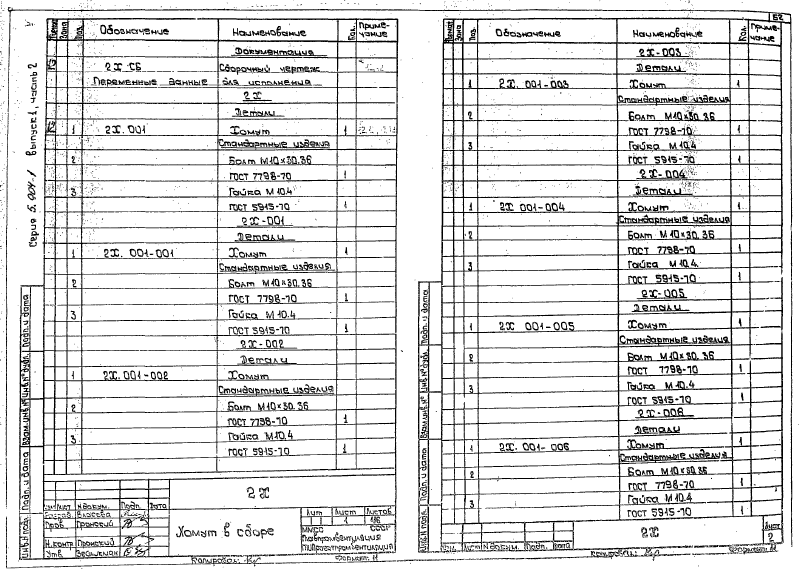 Серия 5.904-1 выпуск 1, часть 2
Формат Зона Поз. Обозначение Наименование Кол. Примечание
Документация
2Х СБ Сборочный чертеж
Переменные данные для исполнения
2Х
Детали
1 2Х. 001 Хомут 1
Стандартные изделия
2 Болт М10×30.36
ГОСТ 7798-70 1
3 Гайка М10.4
ГОСТ 5915-70 1
2Х-001
Детали
1 2Х. 001-001 Хомут 1
Стандартные изделия
2 Болт М10×30.36
ГОСТ 7798-70 1
3 Гайка М10.4
ГОСТ 5915-70 1
2Х-002
Детали
1 2Х. 001-002 Хомут 1
Стандартные изделия
2 Болт М10×30.36
ГОСТ 7798-70 1
3 Гайка М10.4
ГОСТ 5915-70 1
Инв.№ подл. Подп. и дата Взам.инв.№ Инв.№ дубл. Подп. и дата
2Х
Изм. Лист №докум. Подп. Дата
Разраб. Власова
Пров. Пронский
Н.контр. Пронский
Утв.
Хомут в сборе
Лит Лист Листов
1
ММСС СССР
Главпромвентиляция
ГПИПроектпромвентиляция
Копировал: Формат: 11
52
Формат Зона Поз. Обозначение Наименование Кол. Примечание
2Х-003
Детали
1 2Х. 001-003 Хомут 1
Стандартные изделия
2 Болт М10×30.36
ГОСТ 7798-70 1
3 Гайка М10.4
ГОСТ 5915-70 1
2Х-004
Детали
1 2Х. 001-004 Хомут 1
Стандартные изделия
2 Болт М10×30.36
ГОСТ 7798-70 1
3 Гайка М10.4.
ГОСТ 5915-70 1
2Х-005
Детали
1 2Х 001-005 Хомут 1
Стандартные изделия
2 Болт М10×30.36
ГОСТ 7798-70 1
3 Гайка М10.4
ГОСТ 5915-70 1
2Х-006
Детали
1 2Х. 001-006 Хомут 1
Стандартные изделия
2 Болт М10×30.36
ГОСТ 7798-70 1
3 Гайка М10.4
ГОСТ 5915-70 1
Инв.№ подл. Подп. и дата Взам.инв.№ Инв.№ дубл. Подп. и дата
Изм. Лист №докум. Подп. Дата
2Х
Лист
2
Копировал: Формат 11